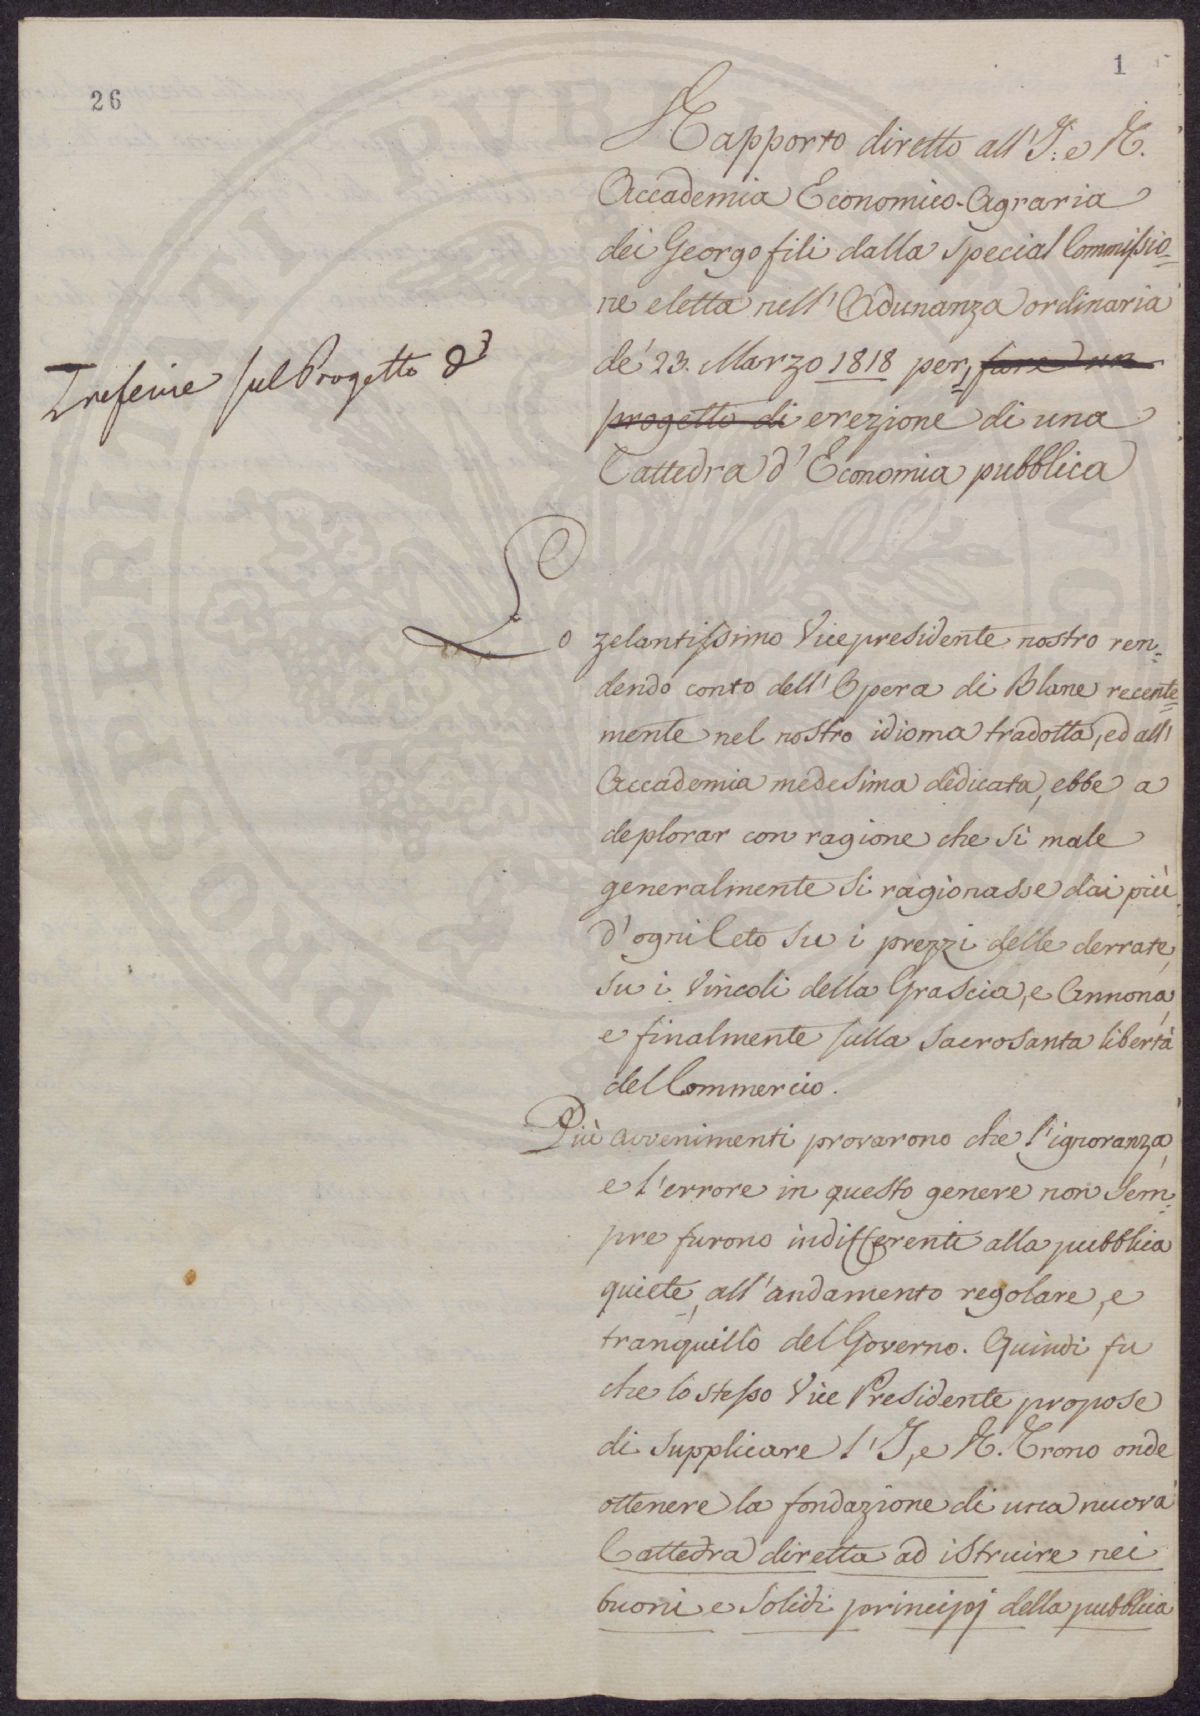 26
1
Rapporto diretto all' I: e R.
Accademia Economico-Agraria
dei Georgofili dalla special Commissio=
ne eletta nell' Adunanza ordinaria
de' 23. Marzo 1818 per, fare un
progetto di erezione di una
Cattedra d' Economia pubblica
sul Progetto d'
Lo zelantissimo Vicepresidente nostro ren=
dendo conto dell' Opera di Blane recente=
mente nel nostro idioma tradotta, ed all'
Accademia medesima dedicata, ebbe a
deplorar con ragione che sì male
generalmente si ragionasse dai più
d' ogni Ceto su i prezzi delle derrate,
su i Vincoli della Grascia, e Annona,
e finalmente sulla sacrosanta libertà
del Commercio.
Più avvenimenti provarono che l' ignoranza,
e l' errore in questo genere non sem=
pre furono indifferenti alla pubblica
quiete, all' andamento regolare, e
tranquillo del Governo. Quindi fu
che lo stesso Vice Presidente propose
di supplicare l' I, e R. Trono onde
ottenere la fondazione di una nuova
Cattedra diretta ad istruire nei
buoni e solidi principj della pubblica
PRIVATI PVBLICO PROSPERITATI AVGENDAE